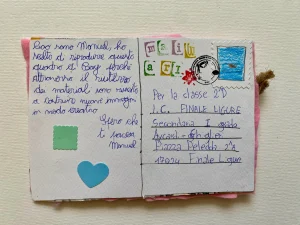 Ciao sono Manuel, ho
scelto di riprodurre questo
quadro di Baj perché
attraverso il riutilizzo
dei materiali sono riuscito
a costruire nuove immagini
in modo creativo
Spero che
ti piaccia
Manuel
mail
art
Per la classe 2°D
I.C. FINALE LIGURE
Secondaria I grado
Piazza
17024 Finale Ligure